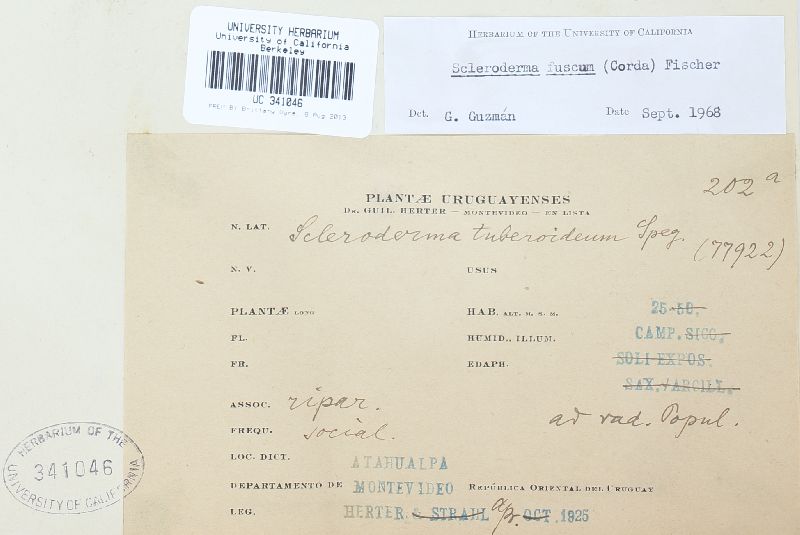 UNIVERSITY HERBARIUM
University of California
Berkeley
UC 341046
HERBARIUM OF THE UNIVERSITY OF CALIFORNIA
Scleroderma fuscum (Corda) Fischer
Det. G. Guzmán Date Sept. 1968
202 a
PLANTÆ URUGUAYENSES
DR. GUIL. HERTER — MONTEVIDEO — EN LISTA
N. LAT. Scleroderma tuberoideum Speg.
(77922)
N. V. USUS
PLANTÆ LONG HAB. ALT. M. S. M. 25-50.
FL. HUMID., ILLUM. CAMP. SICC.
FR. EDAPH. SOLI EXPOS.
SAX. ARCILL.
ASSOC. ripar.
ad rad. Popul.
FREQU. social.
LOC. DICT. ATAHUALPA
DEPARTAMENTO DE MONTEVIDEO REPÚBLICA ORIENTAL DEL URUGUAY
LEG. HERTER & STRAHL apr. OCT. 1925
HERBARIUM OF THE
341046
UNIVERSITY OF CALIFORNIA